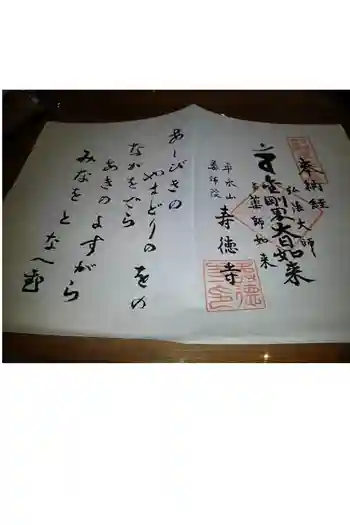 奉納経
弘法大師
金剛界大日如来
薬師如来
平水山
寿徳寺
薬師院
あしびきの
やまどりのをの
ながきでら
あきのよすがら
みなをとなへむ